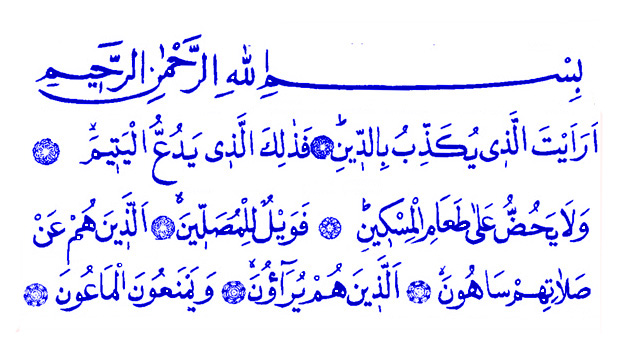 بِسْمِ اللهِ الرَّحْمٰنِ الرَّحٖيمِ
اَرَاَيْتَ الَّذٖى يُكَذِّبُ بِالدّٖينِؕ فَذٰلِكَ الَّذٖى يَدُعُّ الْيَتٖيمَۙ
وَلَا يَحُضُّ عَلٰى طَعَامِ الْمِسْكٖينِؕ فَوَيْلٌ لِلْمُصَلّٖينَۙ اَلَّذٖينَ هُمْ عَنْ
صَلَاتِهِمْ سَاهُونَۙ اَلَّذٖينَ هُمْ يُرَٓاؤُنَۙ وَيَمْنَعُونَ الْمَاعُونَ